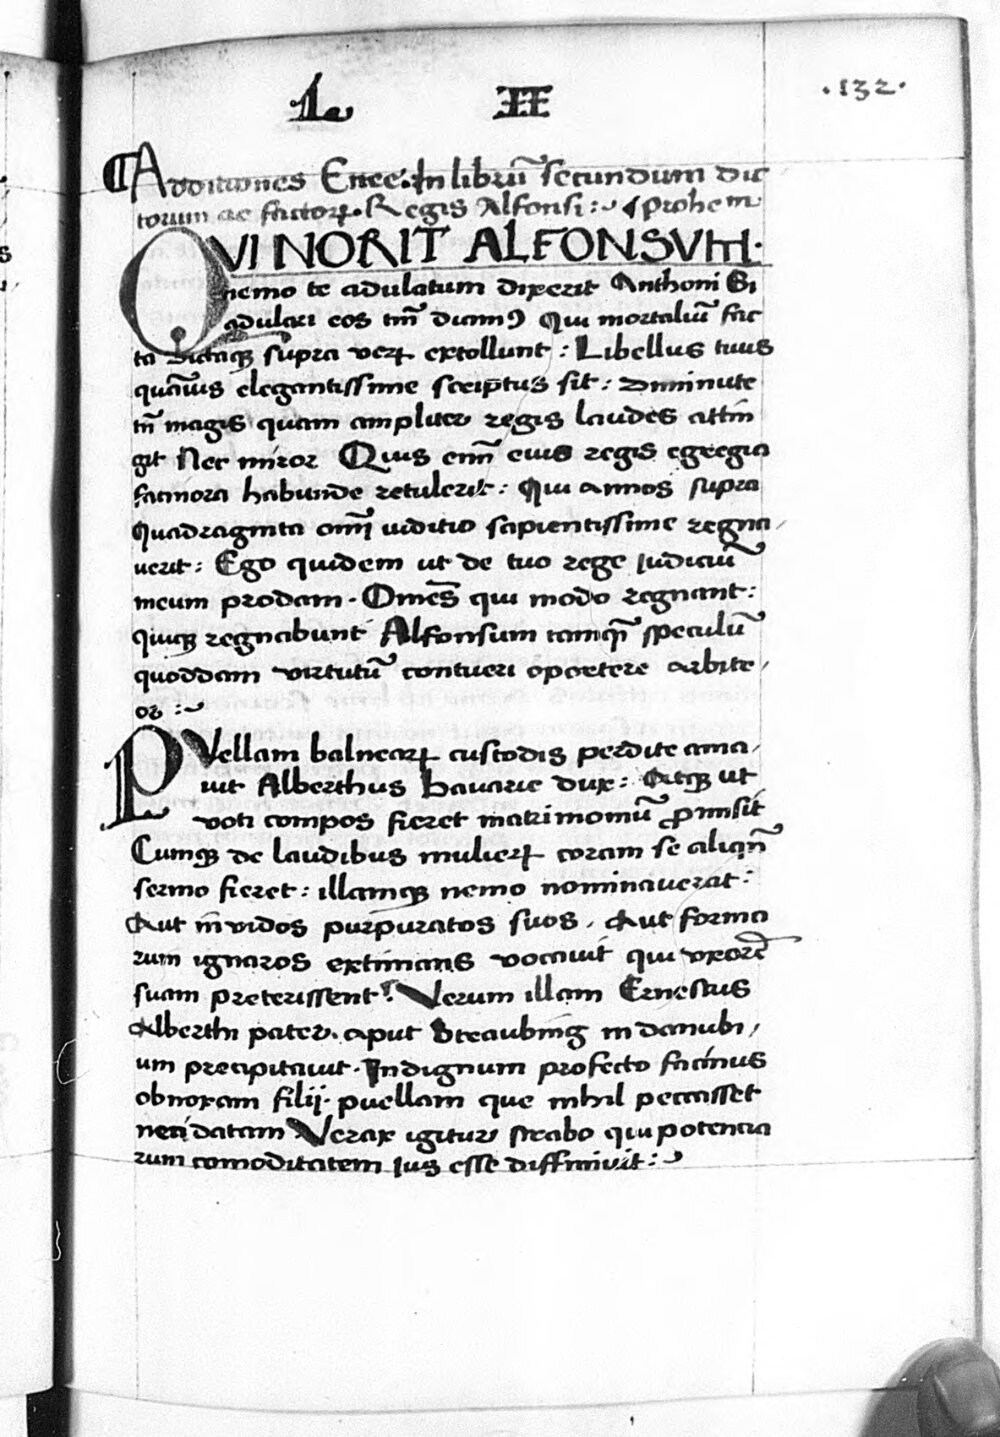 L II .132.
¶Additiones Enee. In librũ secundum dic
torum ac factoꝝ. Regis Alfonsi :~ prohem
QVI NORIT ALFONSVM.
nemo te adulatum dixerit Anthoni Si
adulari eos tm̃ dicimꝰ qui mortaliũ fac
ta dictaqꝫ supra veꝝ extollunt : Libellus tuus
quãuis elegantissime scriptus sit : diminute
tñ magis quam ampliter regis laudes attin
git Nec miror Quis enĩ eius regis egregia
facinora habunde retulerit : Qui annos supra
quadraginta omĩ iuditio sapientissime regna
uerit : Ego quidem ut de tuo rege iudiciũ
meum prodam. Omẽs qui modo regnant :
quiqꝫ regnabunt Alfonsum tamqꝫ̃ speculũ
quoddam virtutũ contueri oportere arbitr
or :~
PVellam balneaꝝ custodis perdite ama
uit Alberthus bauarie dux : Atqꝫ ut
voti compos fieret matrimoniũ ꝓmisit
Cumqꝫ de laudibus mulieꝝ coram se aliqñ
sermo fieret : illamqꝫ nemo nominauerat :
Aut inuidos purpuratos suos, Aut forma
rum ignaros extimans vocauit qui vxorẽ
suam preterissent. Verum illam Ernestus
Alberthi pater. aput Straubing in danubi
um precipitauit. Indignum profecto facinus
obnoxam filij. puellam que nihil peccasset
neci datam Verax igitur strabo qui potencia
rum comoditatem ius esse diffiniuit :~